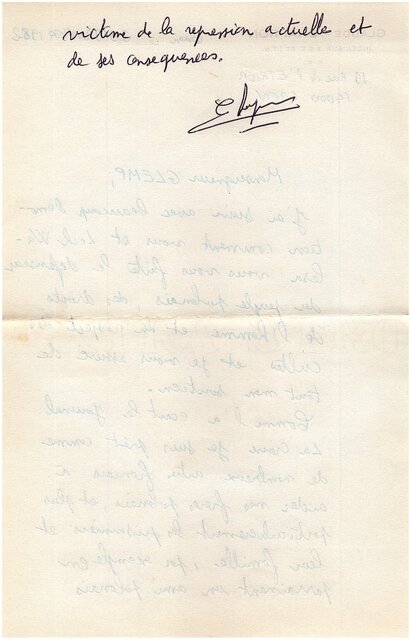 victime de la repression actuelle et
de ses consequences.
Monseigneur GLEMP,
J'ai suivi avec beaucoup d'émo-
tion comment vous et Lech Wa-
lesa vous vous faite le defenseur
du peuple polonais, des droits
de l'homme et du respect des
cultes et je vous assure de
tout mon soutien.
Comme l'a ecrit le journal
La Croix je suis prêt comme
de nombreux autres français à
aider nos frères polonais, et plus
particulierement les prisonniers et
leur famille, par exemple en
parrainant un ami polonais